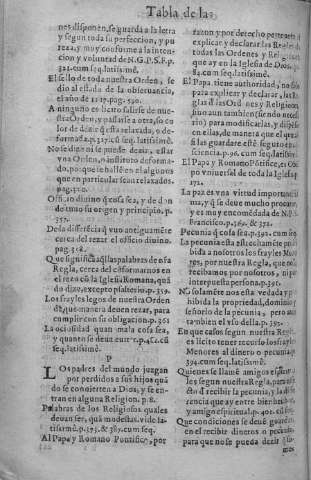 Tabla de las
nes disponen, se guarda a la letra
y segun toda su perfeccion, y pu
reza, y muy conforme a la inten
cion y voluntad de N.G.P.S.F.p.
321. cum seq. latissimè.
El sello de toda nuestra Orden, se
dio al estado de la obseruancia,
el año de 1517. pag. 590.
A ninguno es licito salirse de nues
tra Orden, y passarse a otro, so co
lor de dezir q̃ esta relaxada, o de-
formada. p. 327. cũ seq. latissimè.
No se dize ni se puede dezir, estar
vna Orden, o instituto deforma-
do, porque se hallen en algunos
que en particular sean relaxados.
pag. 320.
Officio diuino q̃ cosa sea, y de don
de tomò su origen y principio. p.
357.
De la differẽcia q̃ vuo antiguamẽte
cerca del rezar el officio diuino.
pag. 358.
Que significa aq̃llas palabras de nr̃a
Regla, cerca del cõformarnos en
el rezo cõ la Iglesia Romana, quã
do dize, excepto psalterio. p. 359.
Los frayles legos de nuestra Orden
de que manera deuen rezar, para
cumplir con su obligacion. p. 361
La ociosidad quan mala cosa sea,
y quanto se deue euitar. p. 452. cũ
seq. latissimè.
P
Los padres del mundo juzgan
por perdidos a sus hijos quã
do se conuierten a Dios, y se en-
tran en alguna Religion. p. 8.
Palabras de los Religiosos quales
deuan ser, quã modestas. vide la-
tissimè. p. 373. & 387. cum seq.
Al Papa y Romano Pontifice, por
razon y por derecho pertenece
explicar y declarar las Reglas de
todas las Ordenes y Religiones
que ay en la Iglesia de Dios. p.
84. cum seq. latissimè.
El Papa tiene authoridad, no solo
para explicar y declarar, las Re
glas de las Ordenes y Religiones,
sino aun tambien (siendo necessa
rio) para modificarlas, y dispẽsar
en ellas, de manera que el que a
si las guardare estè seguro en con
sciencia. p. 96. cum seq. latissimè.
El Papa y Romano Põtifice, es Obis
po vniuersal de toda la Iglesia p.
La paz es vna virtud importantissi
ma, y q̃ se deue mucho procurar,
y es muy encomẽdada de N.P.S.
Francisco. p. 369. & 372.
Pecunia q̃ cosa sea. p. 391. cum seq.
La pecunia esta estrechamẽte prohi
bida a nosotros los frayles Meno
res, por nuestra Regla, que no la
recibamos por nosotros, ni por
interpuesta persona. p. 391.
No solamẽte nos esta vedada y pro
hibida la propiedad, dominio y
señorio de la pecunia, pero aun
tambien el vso della. p. 392.
En que casos segun nuestra Regla
es licito tener recurso los frayles
Menores al dinero o pecunia. p.
394. cum seq. latissimè.
Quienes se llamẽ amigos espiritua
les segun nuestra Regla, para efec
to d̃ recibir la pecunia, y la diffe
rencia que ay entre bienhechor,
y amigo espiritual. p. 401. cũ seq.
Que condiciones se deuẽ guardar
en el recibir dineros o pecunia
para que no se pueda dezir